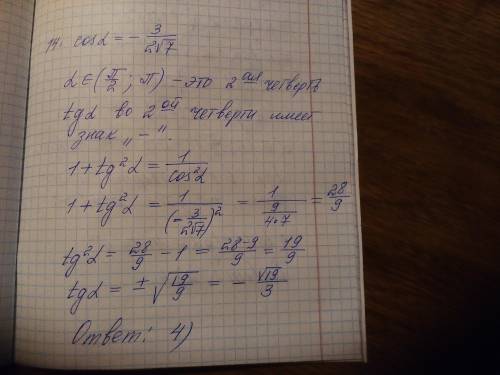 14. cosα = - 3/(2√7)
α ∈ (π/2; π) - это 2ая четверть
tgα во 2ой четверти имеет
знак „ - ".
1 + tg²α = 1/cos²α
1 + tg²α = 1/(-3/(2√7))² = 1/(9/(4·7)) = 28/9
tg²α = 28/9 - 1 = (28-9)/9 = 19/9
tgα = ±√(19/9) = - √19/3
Ответ: 4)